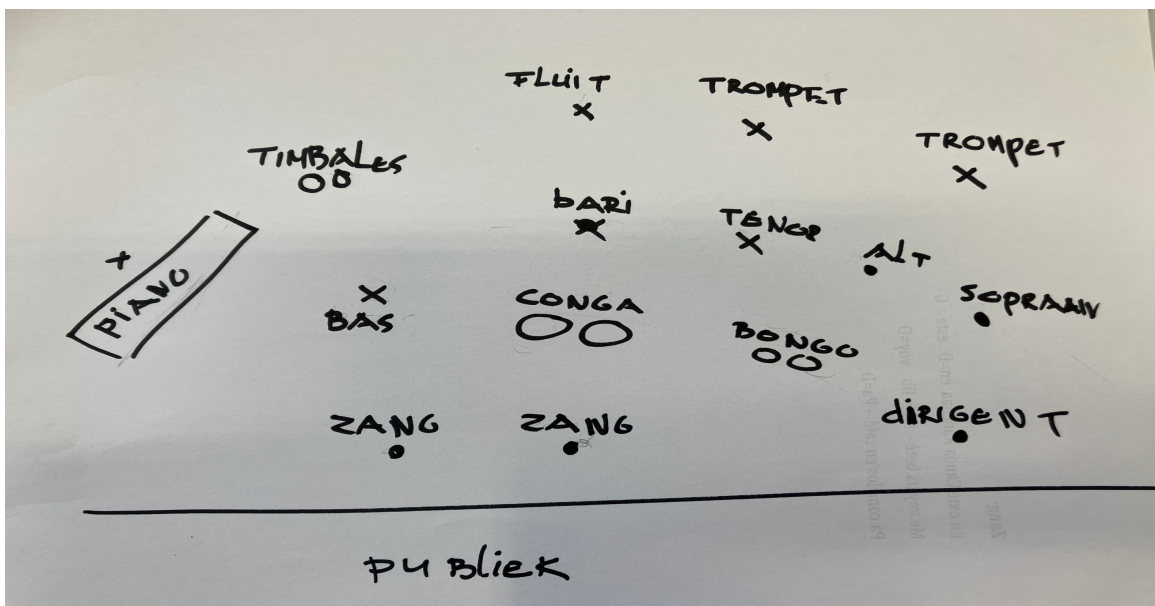 FLUIT
TROMPET
TROMPET
TIMBALES
bARI
TENOR
ALT
PIANO
BAS
CONGA
BONGO
ZANG
ZANG
dIRIGENT
PUBLIEK